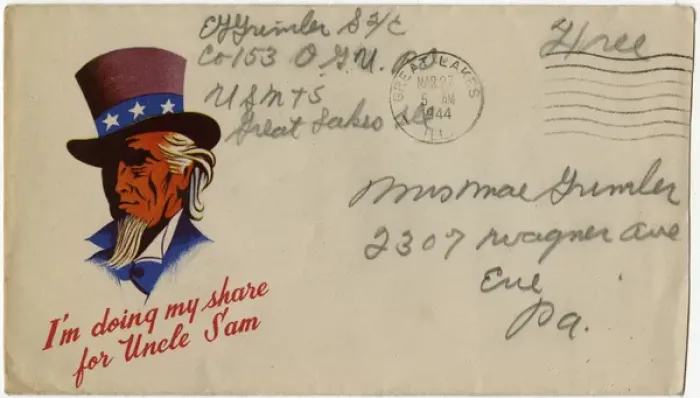 EJ Grimler S 2/c
Co 153 O.G.U.
USNTS
Great Lakes Ill
Free
GREAT LAKES
MAR 27
5 AM
1944
ILL.
Mrs Mae Grimler
2307 Wagner Ave
Erie
Pa.
I'm doing my share
for Uncle Sam